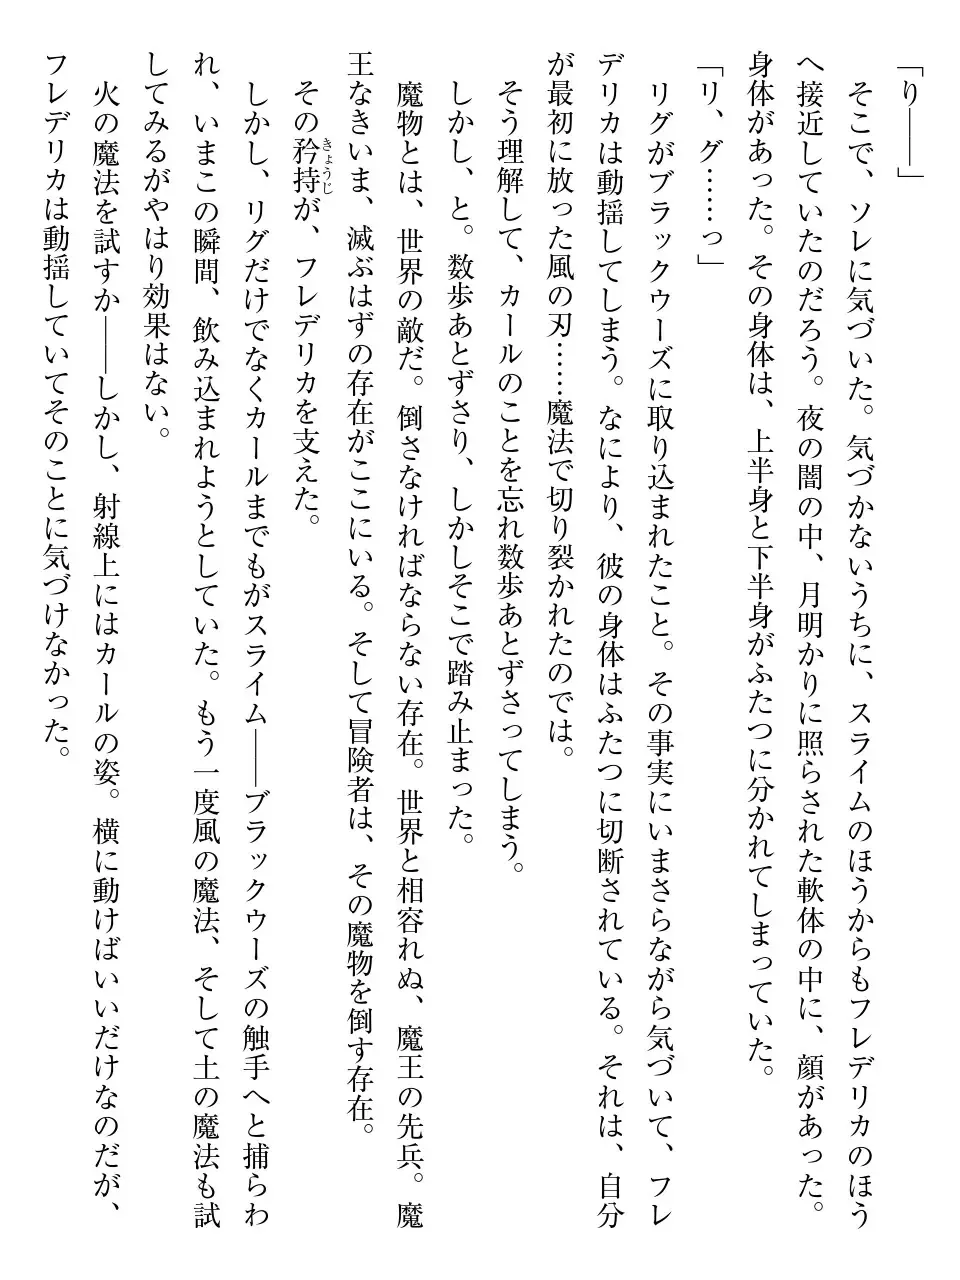 「り――」
　そこで、ソレに気づいた。気づかないうちに、スライムのほうからもフレデリカのほう
へ接近していたのだろう。夜の闇の中、月明かりに照らされた軟体の中に、顔があった。
身体があった。その身体は、上半身と下半身がふたつに分かれてしまっていた。
「リ、グ……っ」
　リグがブラックウーズに取り込まれたこと。その事実にいまさらながら気づいて、フレ
デリカは動揺してしまう。なにより、彼の身体はふたつに切断されている。それは、自分
が最初に放った風の刃……魔法で切り裂かれたのでは。
　そう理解して、カールのことを忘れ数歩あとずさってしまう。
　しかし、と。数歩あとずさり、しかしそこで踏み止まった。
　魔物とは、世界の敵だ。倒さなければならない存在。世界と相容れぬ、魔王の先兵。魔
王なきいま、滅ぶはずの存在がここにいる。そして冒険者は、その魔物を倒す存在。
　その矜持きょうじが、フレデリカを支えた。
　しかし、リグだけでなくカールまでもがスライム――ブラックウーズの触手へと捕らわ
れ、いまこの瞬間、飲み込まれようとしていた。もう一度風の魔法、そして土の魔法も試
してみるがやはり効果はない。
　火の魔法を試すか――しかし、射線上にはカールの姿。横に動けばいいだけなのだが、
フレデリカは動揺していてそのことに気づけなかった。